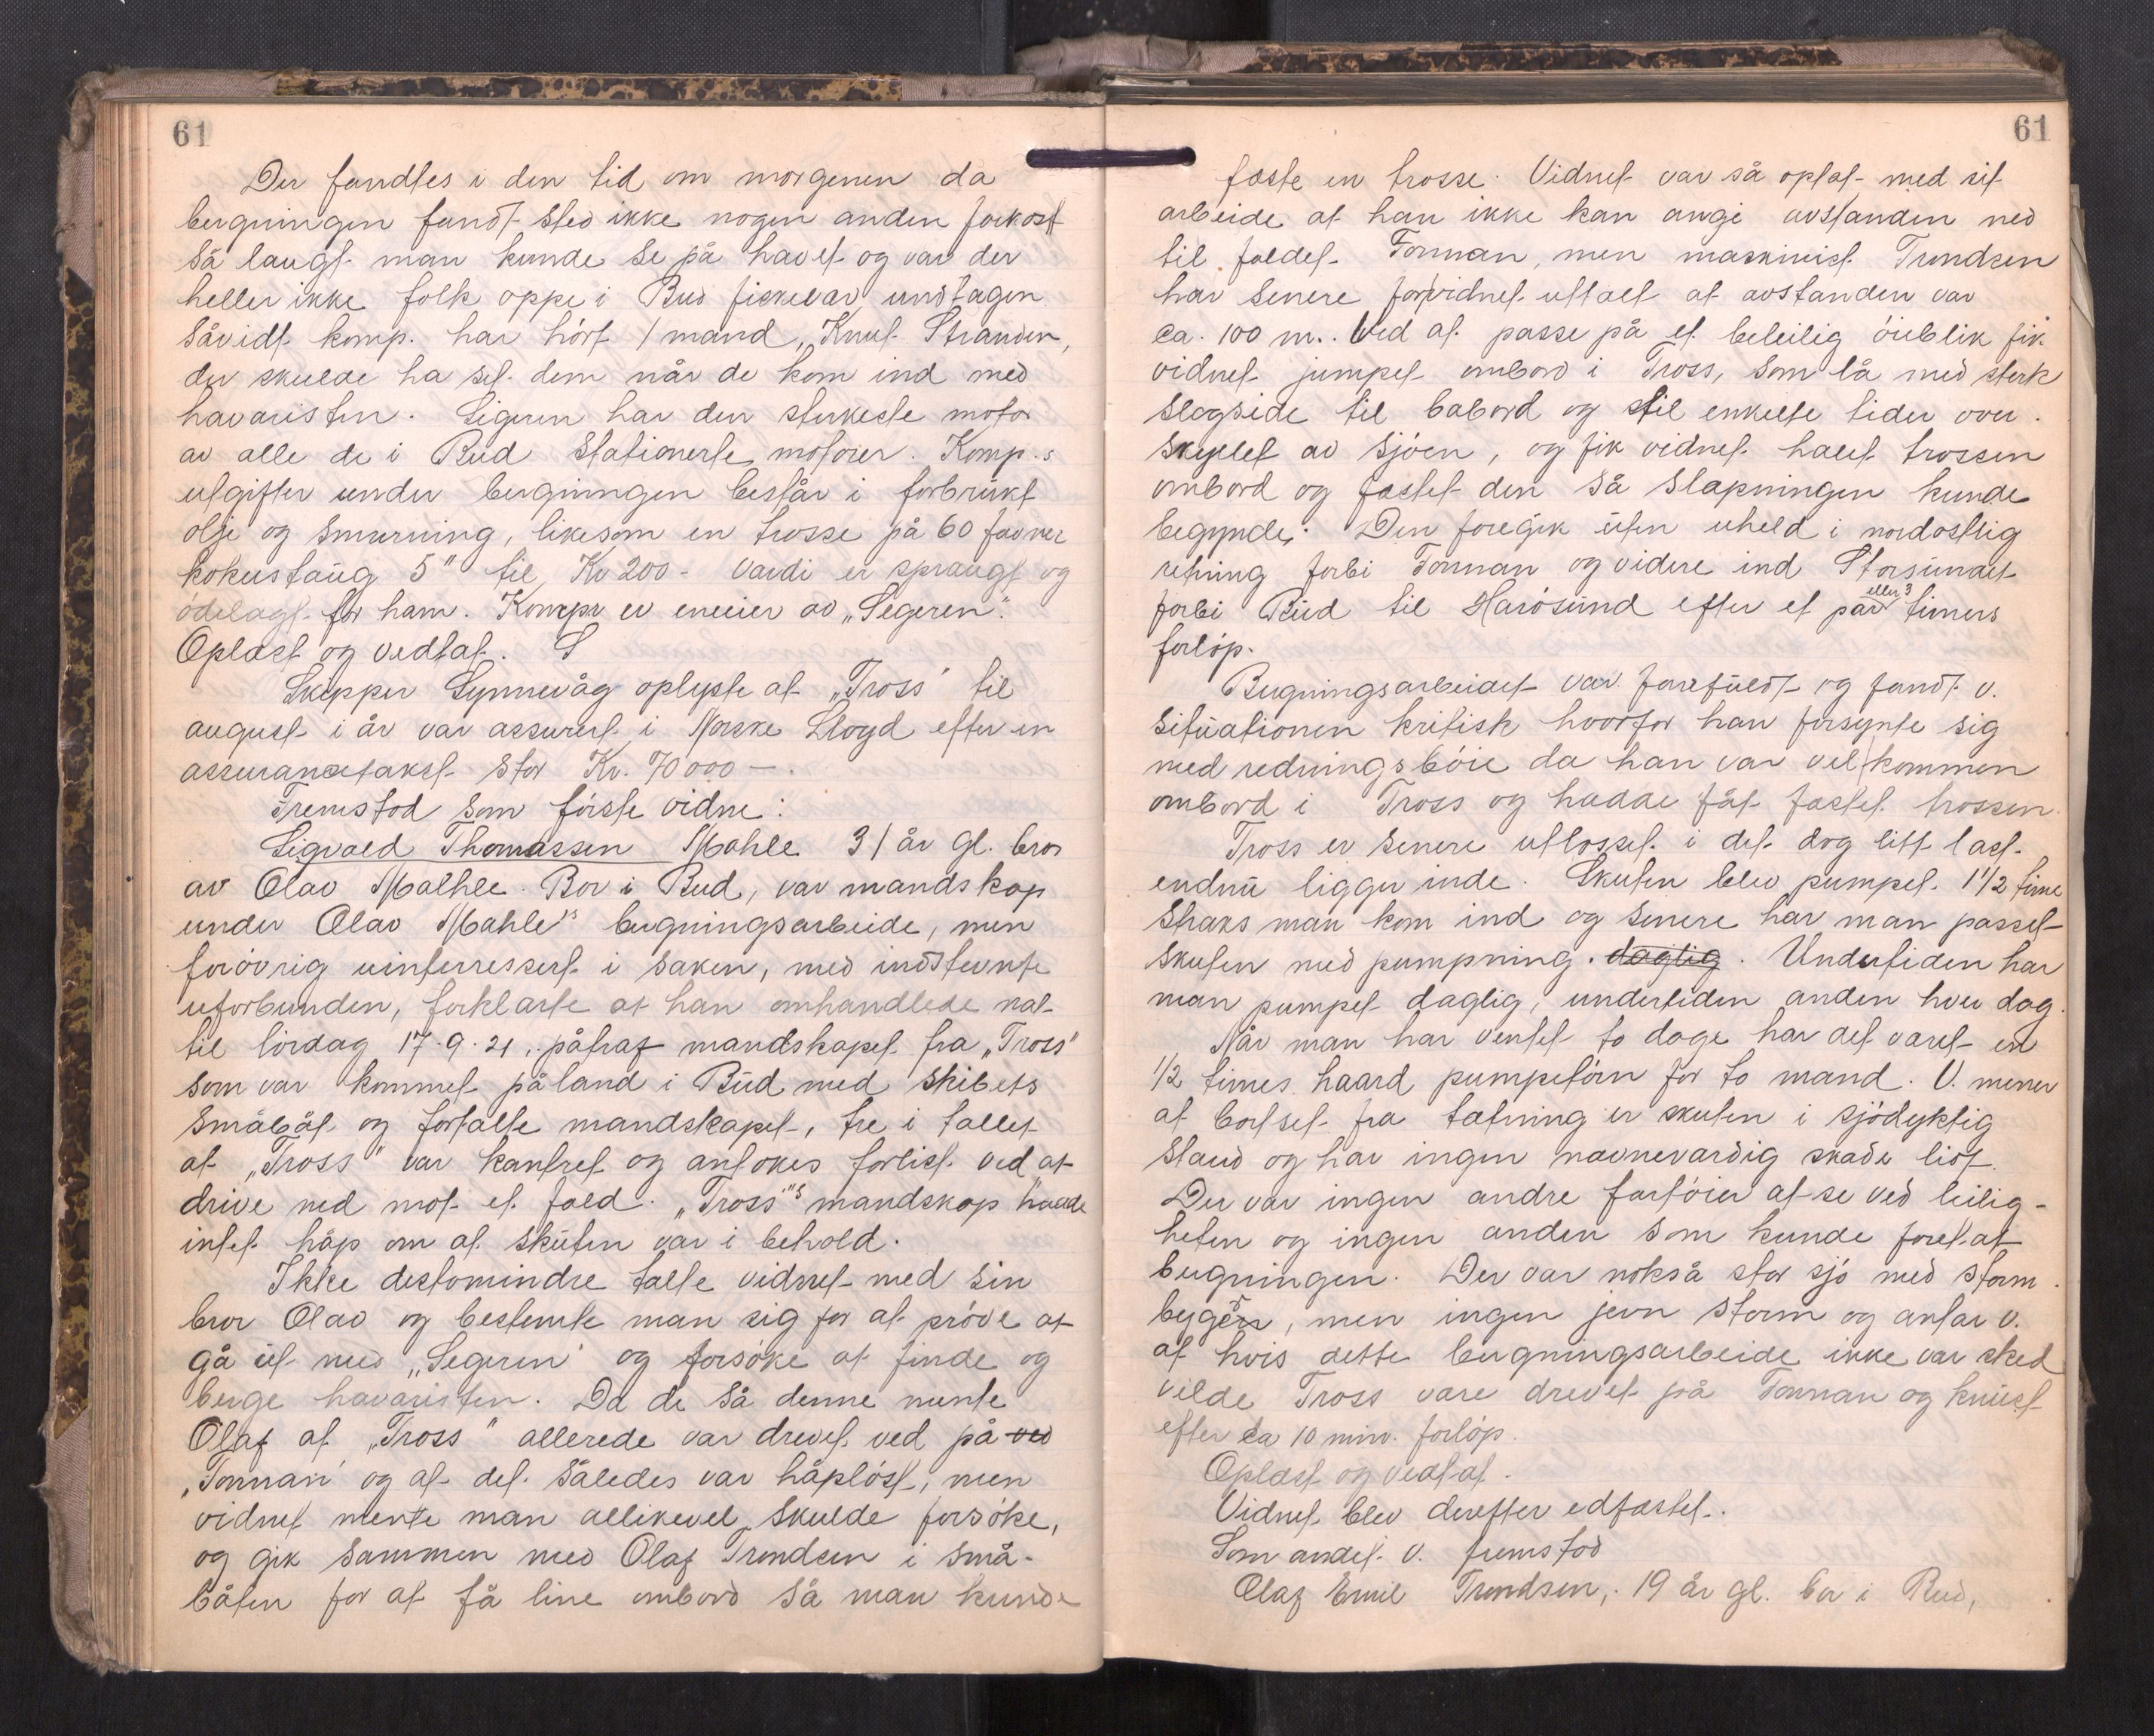 61
Der fandtes i den tid om morgenen da
bergningen fandt sted ikke nogen anden farkost
så langt man kunde se på havet og var der
heller ikke folk oppe i Bud fiskevær undtagen
såvidt komp. har hört 1 mand, Knut Stranden,
der skulde ha set dem når de kom ind med
havaristen. Segeren har den sterkeste motor
av alle de i Bud stationerte motorer. Komp.s
utgifter under bergningen består i forbrukt
olje og smurning, likesom en trosse på 60 favner
kokustaug 5" til Kr 200- værdi er sprængt og
ödelagt for ham. Kompr er eneeier av „Segeren".
Oplæst og vedtat. S
Skipper Synnevåg oplyste at „Tross" til
august i år var assurert i Norske Lloyd efter en
assurancetakst stor Kr. 70000-.
Fremstod som förste vidne:
Sigvald Thomassen Mahle 31 år gl. bror
av Olav Malhle. Bor i Bud, var mandskap
under Olav Mahle's bergningsarbeide, men
forövrig uinterressert i saken, med indstevnte
uforbunden, forklarte at han omhandlede nat
til lördag 17.9.21, påtraf mandskapet fra „Tross"
som var kommet på land i Bud med skibets
småbåt og fortalte mandskapet, tre i tallet
at „Tross" var kantret og antokes forlist ved at
drive ned mot et fald. „Tross"'s mandskap hadde
intet håp om at skuten var i behold.
Ikke destomindre talte vidnet med sin
bror Olav og bestemte man sig for at pröve at
gå ut med „Segeren" og forsöke at finde og
berge havaristen. Da de så denne mente
Olaf at „Tross" allerede var drevet ved på ved
„Tonnan" og at det således var håplöst, men
vidnet mente man allikevel skulde forsöke,
og gik sammen med Olaf Trondsen i små-
båten for at få line ombord så man kunde
61
fæste en trosse. Vidnet var så optat med sit
arbeide at han ikke kan angi avstanden ned
til faldet Tonnan, men maskinist Trondsen
har senere for vidnet uttalt at avstanden var
ca. 100 m.. Ved at passe på et beleilig öieblik fik
vidnet jumpet ombord i Tross, som lå med sterk
slagside til babord og til enkelte tider over-
skyllet av sjöen, og fik vidnet halet trossen
ombord og fæstet den så slæpningen kunde
begynde. Den foregik uten uheld i nordostlig
retning forbi Tonnan og videre ind Storsundet
forbi Bud til Harösund efter et par eller 3 timers
forlöp.
Bergningsarbeidet var farefuldt og fandt v.
situationen kritisk hvorfor han forsynte sig
med redningsböie da han var vel kommen
ombord i Tross og hadde fåt fæstet trossen.
Tross er senere utlosset i det dog litt last
endnu ligger inde. Skuten blev pumpet 1 1/2 time
straks man kom ind og senere har man passet
skuten med pumpning. daglig. Undertiden har
man pumpet daglig, undertiden anden hver dag.
Når man har ventet to dage har det været en
1/2 times haard pumpetörn for to mand. V. mener
at bortset fra tætning er skuten i sjödyktig
stand og har ingen navneværdig skade lidt.
Der var ingen andre fartöier at se ved leilig-
heten og ingen anden som kunde foretat
bergningen. Der var nokså stor sjö med storm-
byger, men ingen jevn storm og antar v.
at hvis dette bergningsarbeide ikke var sked
vilde Tross være drevet på Tonnan og knust
efter ca 10 min. forlöp.
Oplæst og vedtat.
Vidnet blev derefter edfæstet.
Som andet v. fremstod
Olaf Emil Trondsen, 19 år gl. bor i Bud,